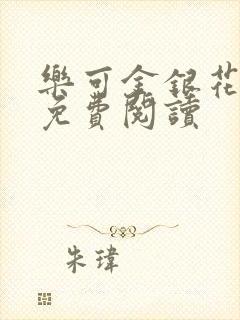 樂可金銀花
免費閱讀
朱瑋